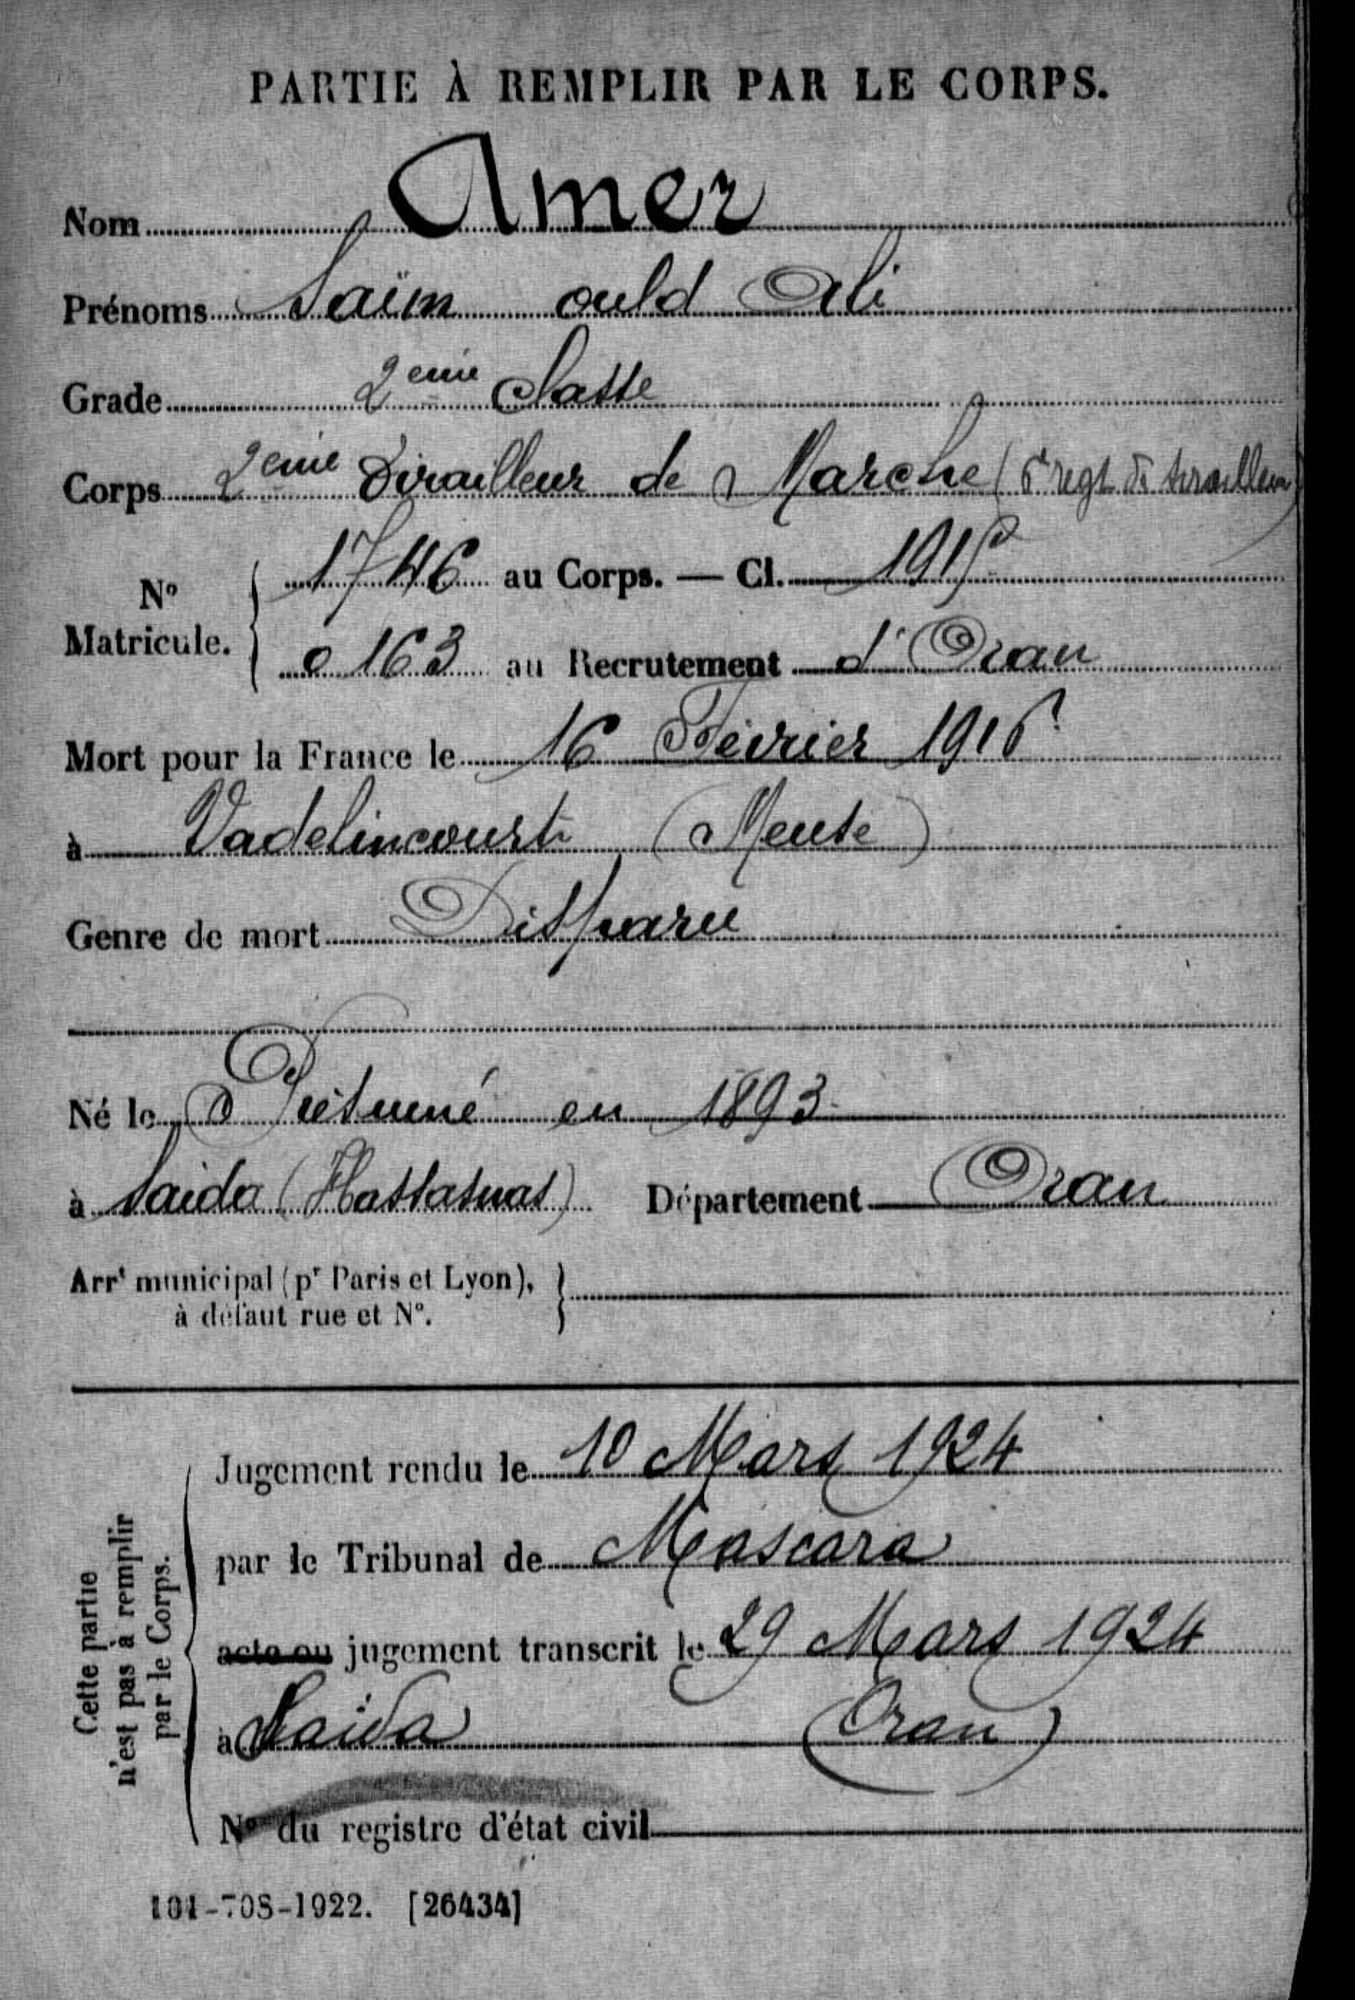 PARTIE À REMPLIR PAR LE CORPS.
Nom Amer
Prénoms Saïm ould Ali
Grade 2eme classe
Corps 2eme Tirailleur de Marche (6e regt de tirailleurs)
No Matricule. 1746 au Corps. — Cl. 1915
0163 au Recrutement d'Oran
Mort pour la France le 16 Février 1916
à Vadelincourt (Meuse)
Genre de mort Disparu
Né le Présumé en 1893
à Saida (Hassasnas) Département Oran
Arrt municipal (pr Paris et Lyon),
à défaut rue et No.
Cette partie
n'est pas à remplir
par le Corps.
Jugement rendu le 10 Mars 1924
par le Tribunal de Mascara
acte ou jugement transcrit le 29 Mars 1924
à Saïda (Oran)
No du registre d'état civil
101-708-1922. [26434]